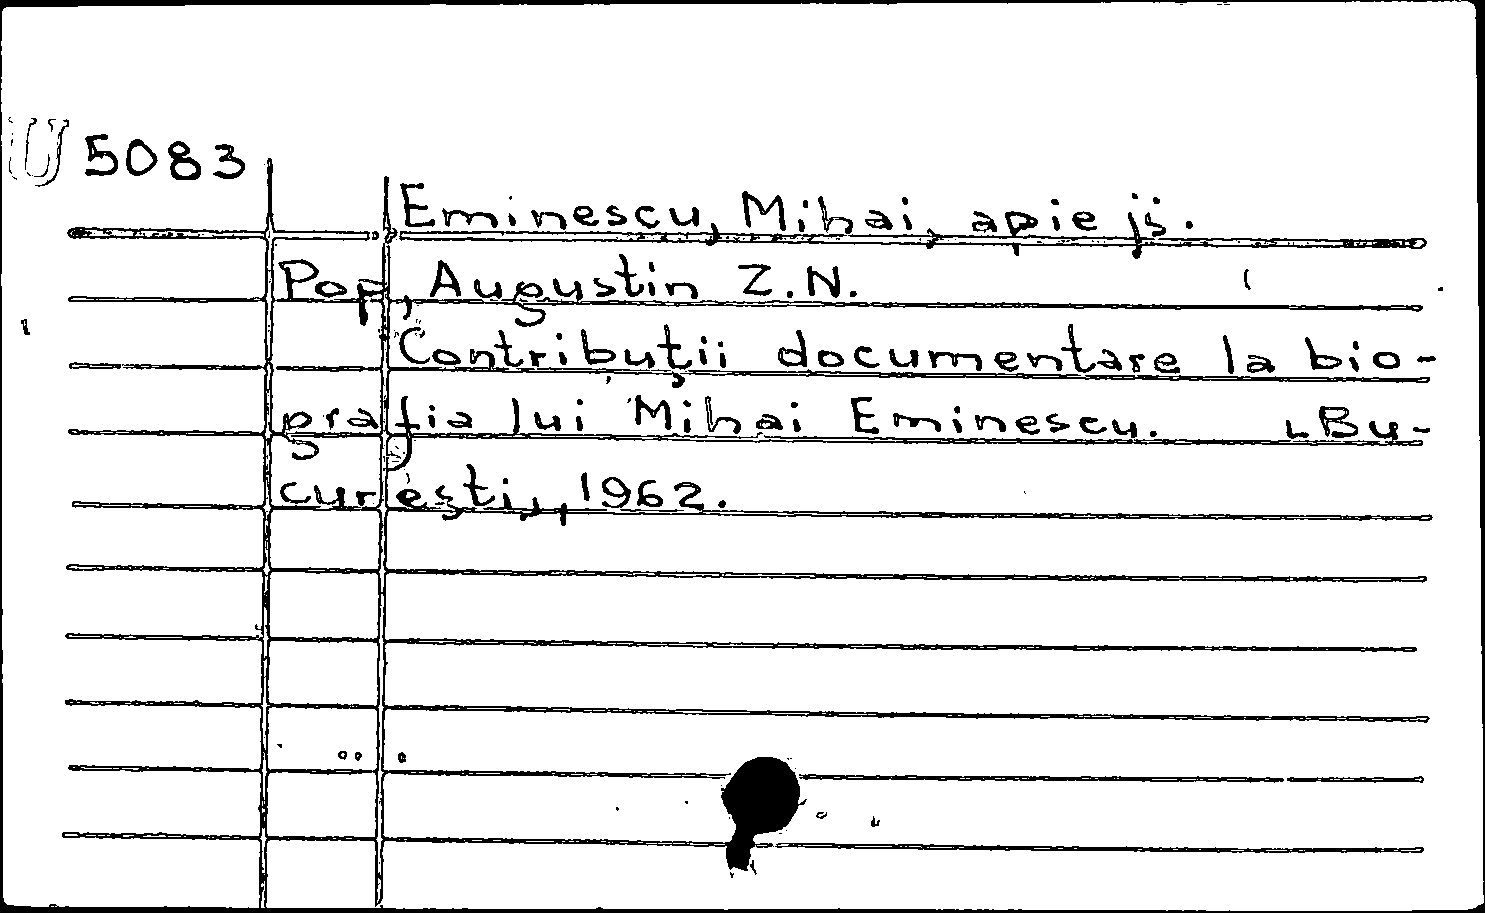 U 5083
Eminescu, Mihai, apie jį.
Pop, Augustin Z.N.
Contribuţii documentare la bio-
grafia lui Mihai Eminescu. [Bu-
cureşti], 1962.